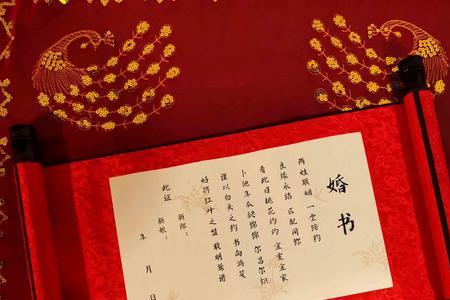 婚书
两姓联姻 一堂缔约
良缘永结 匹配同称
看此日桃花灼灼 宜室宜家
卜他年瓜瓞绵绵 尔昌尔炽
谨以白头之约 书向鸿笺
好将红叶之盟 载明鸳谱
此证
新郎:
新娘:
年 月 日